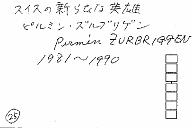 スイスの新らたな英雄
ピルミン・ズルブリゲン
Pirmin ZURBRIGGEN
1981～1990
25